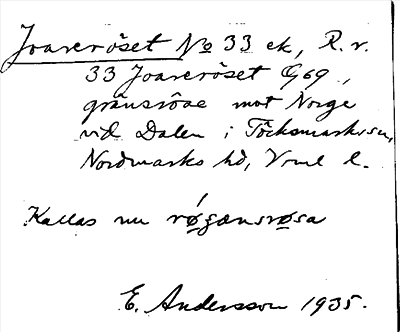 Joareröset No 33 ek, R. r.
33 Joareröset G69,
gränsröse mot Norge
vid Dalen i Töcksmarks sn,
Nordmarks hd, Vrml l.
Kallas nu rǿgænsrøsa
E. Andersson 1935.